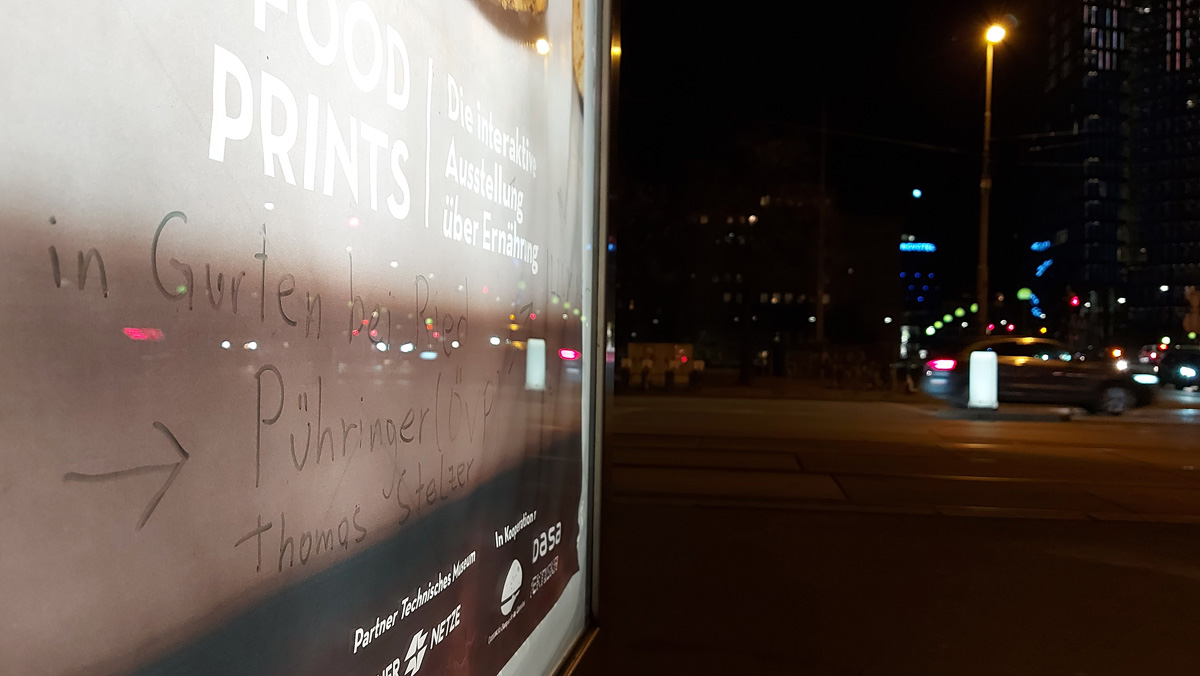 FOOD
PRINTS
Die interaktive
Ausstellung
über Ernährung
in Gurten bei Ried
→ Pühringer (ÖVP
thomas Stelzer
Partner Technisches Museum
NETZE
In Kooperation
DASA
NOVOTEL